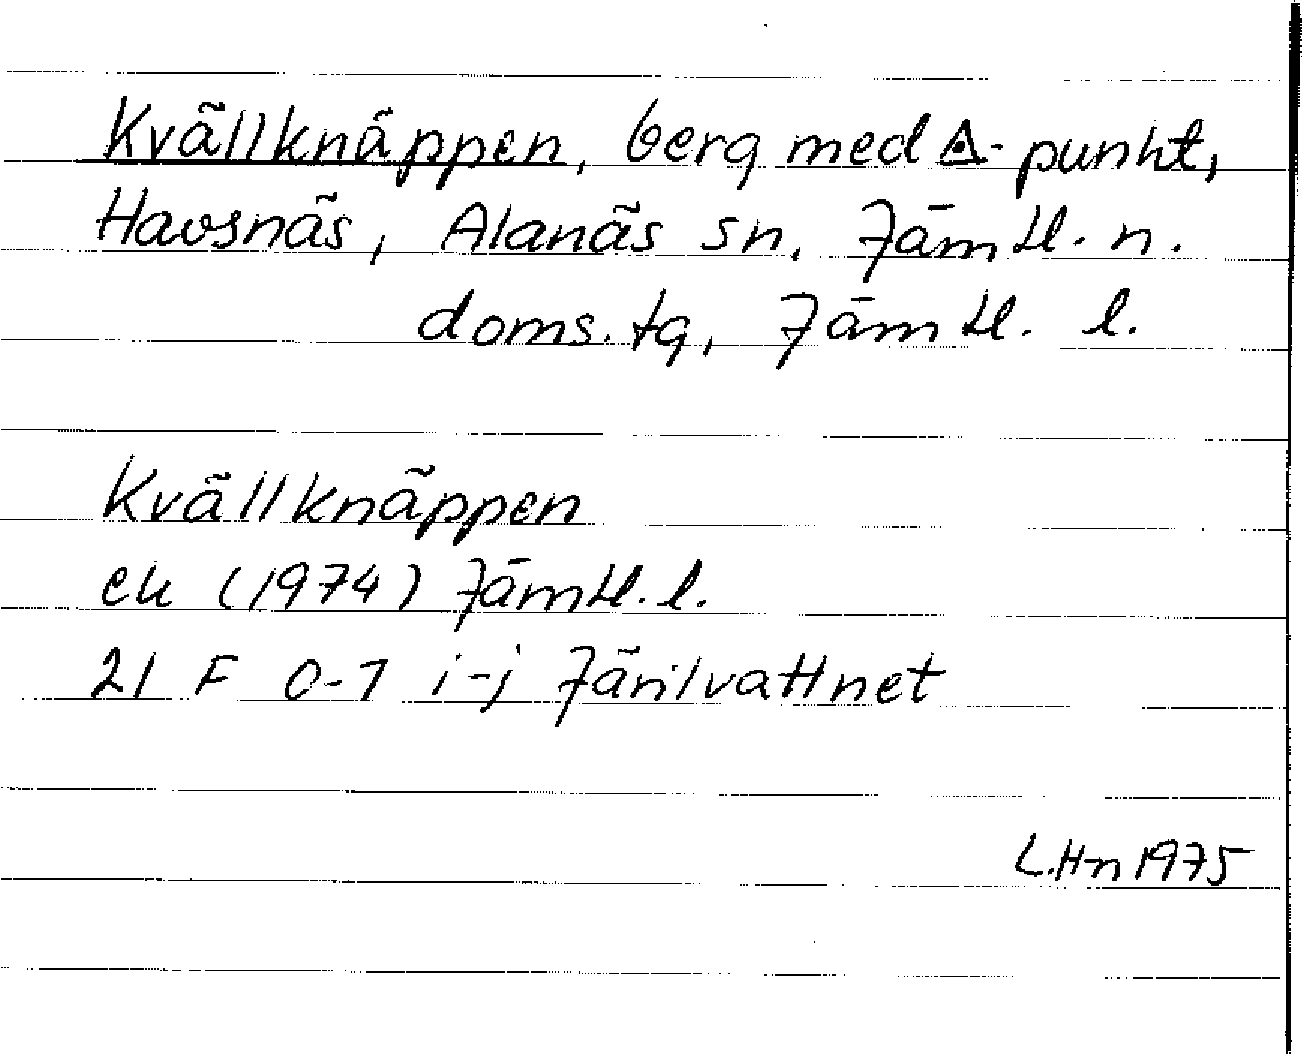 Kvällknäppen, berg med △-punkt,
Havsnäs, Alanäs sn, Jämtl. n.
doms.tg, Jämtl. l.
Kvällknäppen
ek (1974) Jämtl. l.
21 F 0-1 i-j Järilvattnet
L.Hn 1975